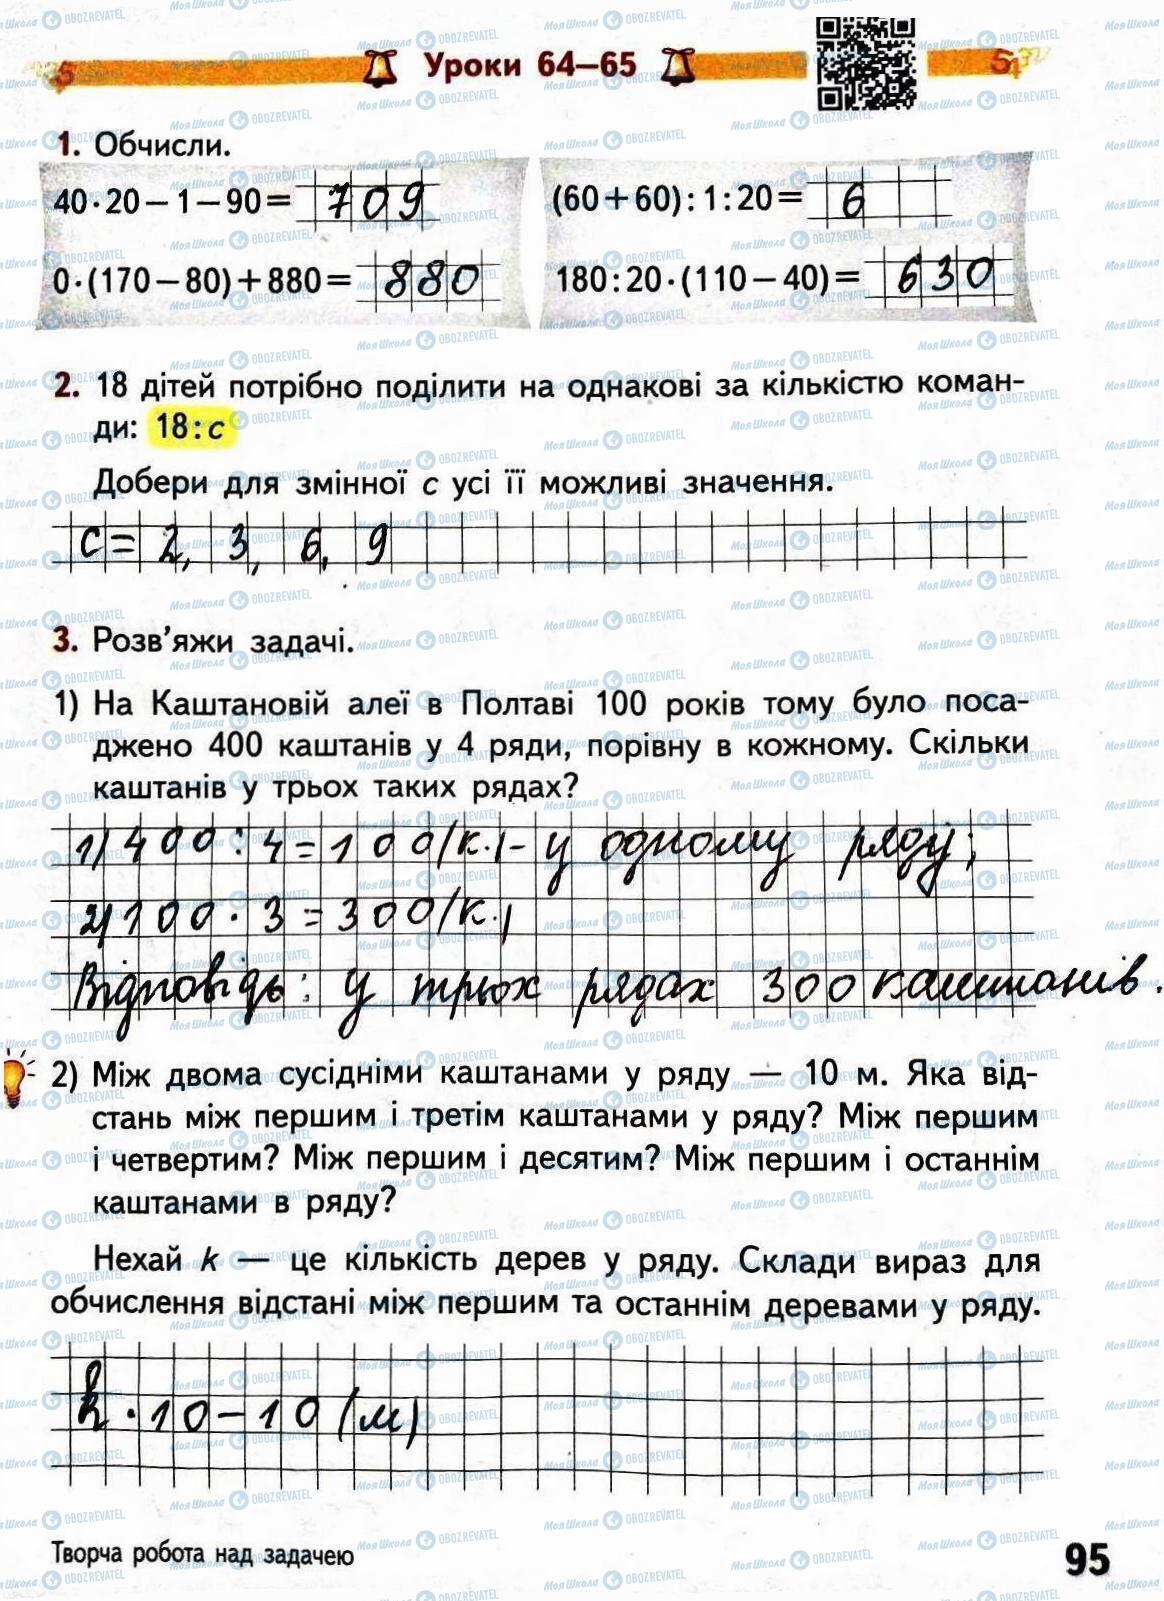 Уроки 64–65
1. Обчисли.
40·20−1−90= 709
(60+60):1:20= 6
0·(170−80)+880= 880
180:20·(110−40)= 630
2. 18 дітей потрібно поділити на однакові за кількістю коман-
ди: 18:c
Добери для змінної c усі її можливі значення.
c= 2, 3, 6, 9
3. Розв'яжи задачі.
1) На Каштановій алеї в Полтаві 100 років тому було поса-
джено 400 каштанів у 4 ряди, порівну в кожному. Скільки
каштанів у трьох таких рядах?
1) 400:4=100(к.)- у одному ряду;
2) 100·3=300(к.)
Відповідь: у трьох рядах 300 каштанів.
2) Між двома сусідніми каштанами у ряду — 10 м. Яка від-
стань між першим і третім каштанами у ряду? Між першим
і четвертим? Між першим і десятим? Між першим і останнім
каштанами в ряду?
Нехай k — це кількість дерев у ряду. Склади вираз для
обчислення відстані між першим та останнім деревами у ряду.
k·10−10(м)
Творча робота над задачею
95